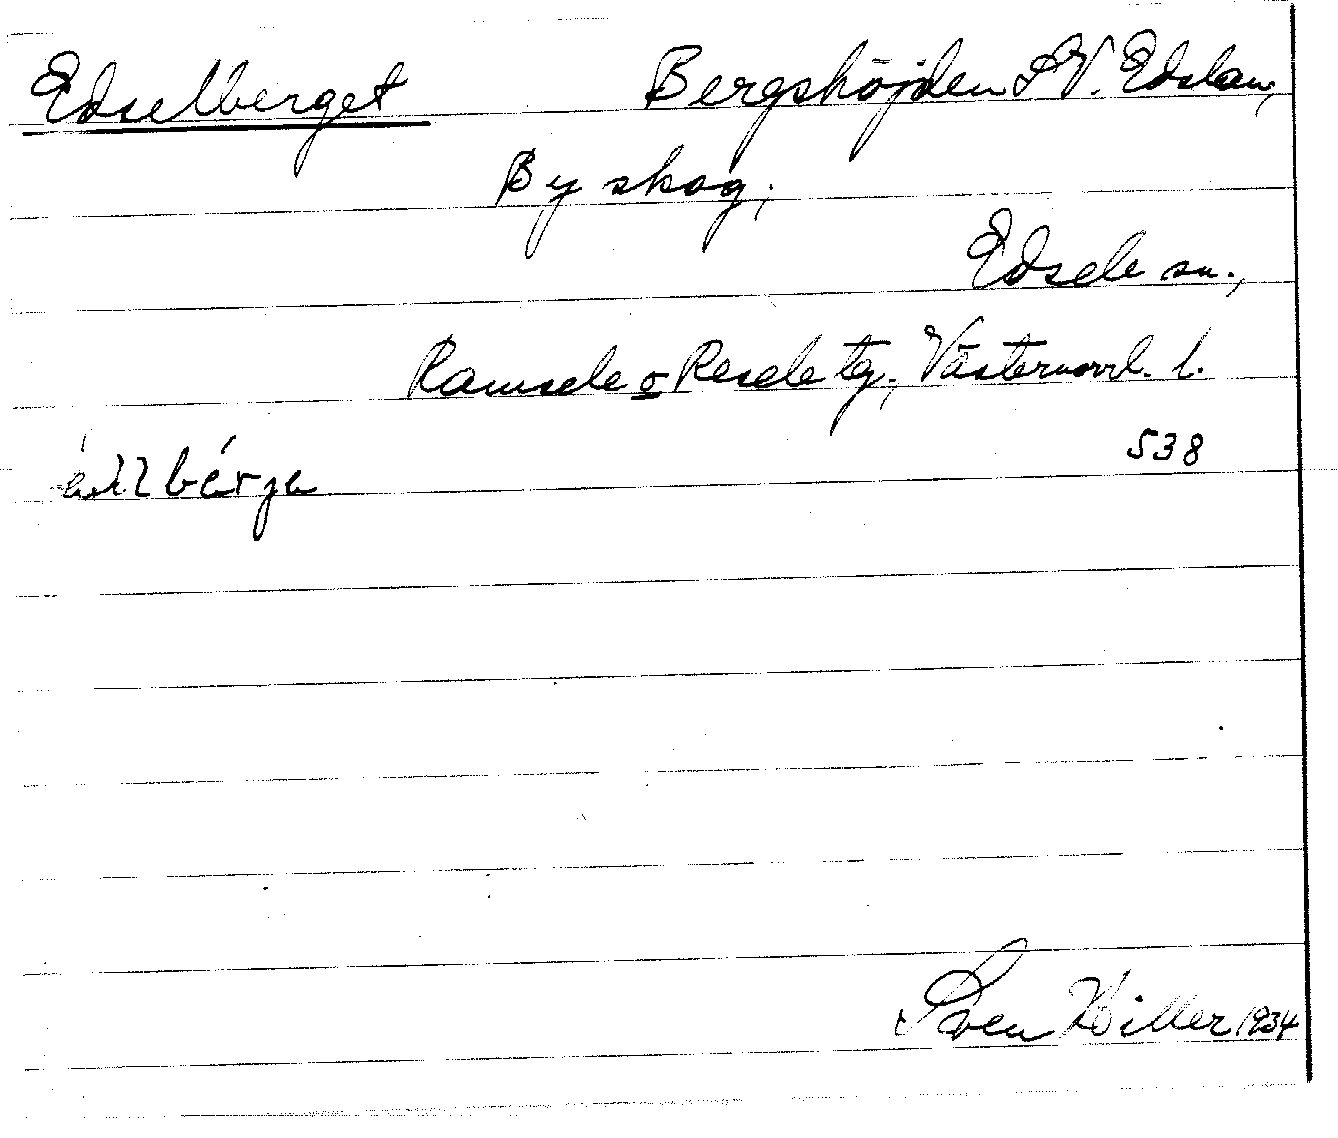 Edselberget Bergshöjden S V. Edslan,
By skog;
Edsele sn.,
Ramsele o Resele tg., Västernorrl. l.
538
Sven Hiller 1934